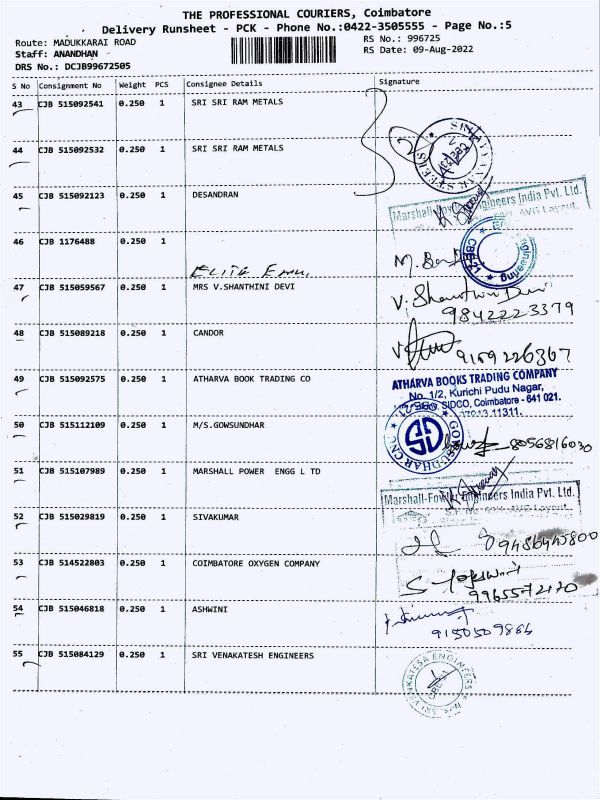 THE PROFESSIONAL COURIERS, Coimbatore
Delivery Runsheet - PCK - Phone No.:0422-3505555 - Page No.:5
Route: MADUKKARAI ROAD
RS No.: 996725
Staff: ANANDHAN
RS Date: 09-Aug-2022
DRS No.: DCJB99672505
S No Consignment No Weight PCS Consignee Details Signature
43 CJB 515092541 0.250 1 SRI SRI RAM METALS
44 CJB 515092532 0.250 1 SRI SRI RAM METALS
45 CJB 515092123 0.250 1 DESANDRAN
Engineers India Pvt. Ltd.
46 CJB 1176488 0.250 1
ELITE
47 CJB 515059567 0.250 1 MRS V.SHANTHINI DEVI
V. Shanthini Devi
9842223379
48 CJB 515089218 0.250 1 CANDOR
9159226367
49 CJB 515092575 0.250 1 ATHARVA BOOK TRADING CO
ATHARVA BOOKS TRADING COMPANY
No. 1/2, Kurichi Pudu Nagar,
SIDCO, Coimbatore - 641 021.
50 CJB 515112109 0.250 1 M/S.GOWSUNDHAR
8056816030
51 CJB 515107989 0.250 1 MARSHALL POWER ENGG L TD
Marshall-Fowler Engineers India Pvt. Ltd.
52 CJB 515029819 0.250 1 SIVAKUMAR
53 CJB 514522803 0.250 1 COIMBATORE OXYGEN COMPANY
54 CJB 515046818 0.250 1 ASHWINI
55 CJB 515084129 0.250 1 SRI VENAKATESH ENGINEERS